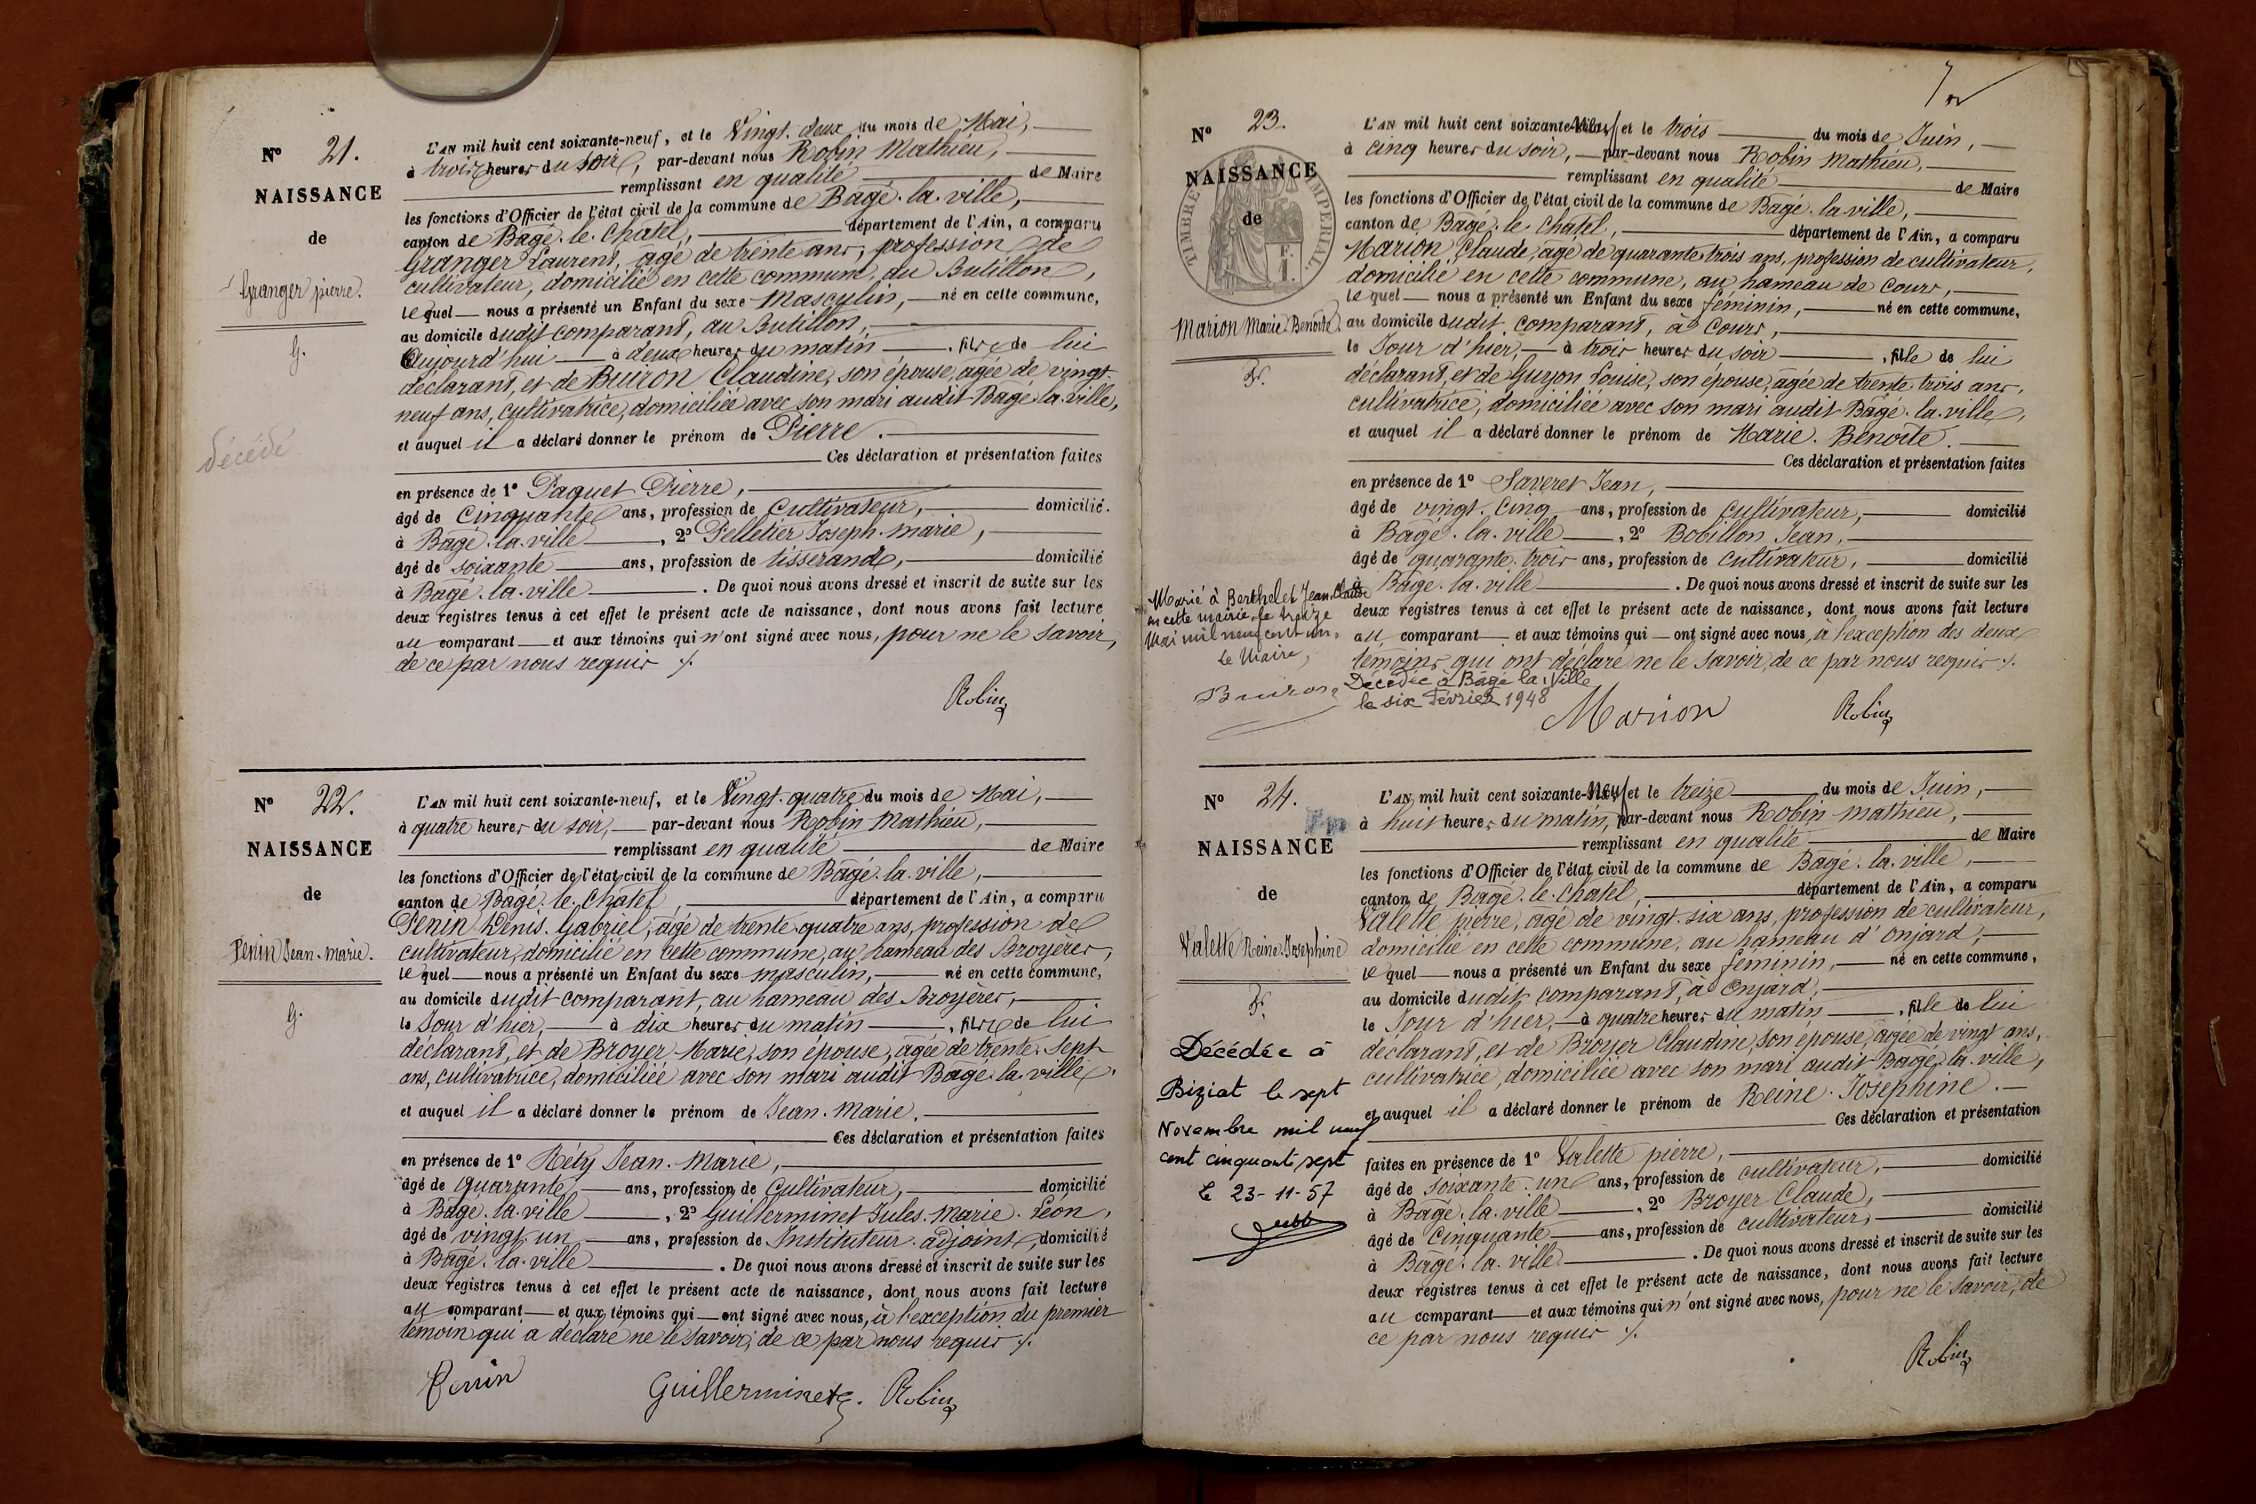 N° 21.
NAISSANCE
de
Granger pierre.
G.
décédé
L'AN mil huit cent soixante-neuf, et le Vingt-deux du mois de Mai,
à trois heures du soir, par-devant nous Robin Mathieu,
remplissant en qualité de Maire
les fonctions d'Officier de l'état civil de la commune de Bagé-la-ville,
canton de Bagé-le-Chatel, département de l'Ain, a comparu
Granger Laurent, âgé de trente ans, profession de
cultivateur, domicilié en cette commune, du Butillon,
lequel nous a présenté un Enfant du sexe Masculin, né en cette commune,
au domicile dudit comparant, au Butillon,
Aujourd'hui à deux heures du matin, fils de lui
déclarant, et de Buiron Claudine, son épouse, agée de vingt-
neuf ans, cultivatrice, domiciliée avec son mari audit Bagé-la-ville,
et auquel il a déclaré donner le prénom de Pierre.
Ces déclaration et présentation faites
en présence de 1° Paquet Pierre,
âgé de Cinquante ans, profession de Cultivateur, domicilié.
à Bagé-la-ville, 2° Pelletier Joseph-marie,
âgé de soixante ans, profession de tisserand, domicilié
à Bagé-la-ville. De quoi nous avons dressé et inscrit de suite sur les
deux registres tenus à cet effet le présent acte de naissance, dont nous avons fait lecture
au comparant et aux témoins qui n'ont signé avec nous, pour ne le savoir,
de ce par nous requis ./.
Robin
N° 22.
NAISSANCE
de
Penin Jean-marie.
G.
L'AN mil huit cent soixante-neuf, et le Vingt-quatre du mois de Mai,
à quatre heures du soir, par-devant nous Robin Mathieu,
remplissant en qualité de Maire
les fonctions d'Officier de l'état civil de la commune de Bagé-la-ville,
canton de Bagé-le-Chatel, département de l'Ain, a comparu
Penin Denis-Gabriel, âgé de trente-quatre ans, profession de
cultivateur, domicilié en cette commune, au hameau des Broyères,
lequel nous a présenté un Enfant du sexe masculin, né en cette commune,
au domicile dudit comparant, au hameau des Broyères,
le Jour d'hier, à dix heures du matin, fils de lui
déclarant, et de Broyer Marie, son épouse, agée de trente-sept
ans, cultivatrice, domiciliée avec son mari audit Bagé-la-ville.
et auquel il a déclaré donner le prénom de Jean-Marie.
Ces déclaration et présentation faites
en présence de 1° Réty Jean-Marie,
âgé de quarante ans, profession de Cultivateur, domicilié
à Bagé-la-ville, 2° Guillerminet Jules-Marie-Léon,
âgé de vingt-un ans, profession de Instituteur-adjoint, domicilié
à Bagé-la-ville. De quoi nous avons dressé et inscrit de suite sur les
deux registres tenus à cet effet le présent acte de naissance, dont nous avons fait lecture
au comparant et aux témoins qui ont signé avec nous, à l'exception du premier
témoin qui a déclaré ne le savoir, de ce par nous requis ./.
Penin Guillerminet. Robin
7
N° 23.
NAISSANCE
de
TIMBRE IMPERIAL
Marion Marie-Benoite
F.
Marié à Berthelet Jean-Claude
en cette mairie, le treize
Mai mil neuf cent un.
Le Maire,
Buiron
L'AN mil huit cent soixante-Neuf et le trois du mois de Juin,
à cinq heures du soir, par-devant nous Robin Mathieu,
remplissant en qualité de Maire
les fonctions d'Officier de l'état civil de la commune de Bagé-la-ville,
canton de Bagé-le-Chatel, département de l'Ain, a comparu
Marion Claude, agé de quarante-trois ans, profession de cultivateur,
domicilié en cette commune, au hameau de Cours,
lequel nous a présenté un Enfant du sexe féminin, né en cette commune,
au domicile dudit comparant, à Cours,
le Jour d'hier, à trois heures du soir, fille de lui
déclarant, et de Guyon Louise, son épouse, agée de trente-trois ans,
cultivatrice, domiciliée avec son mari audit Bagé-la-ville,
et auquel il a déclaré donner le prénom de Marie-Benoite.
Ces déclaration et présentation faites
en présence de 1° Saveret Jean,
âgé de vingt-cinq ans, profession de cultivateur, domicilié
à Bagé-la-ville, 2° Bobillon Jean,
âgé de quarante-trois ans, profession de cultivateur, domicilié
à Bagé-la-ville. De quoi nous avons dressé et inscrit de suite sur les
deux registres tenus à cet effet le présent acte de naissance, dont nous avons fait lecture
au comparant et aux témoins qui ont signé avec nous, à l'exception des deux
témoins qui ont déclaré ne le savoir, de ce par nous requis ./.
Décédée à Bâgé la Ville
le six Février 1948
Marion Robin
N° 24.
NAISSANCE
de
Valette Reine-Josephine
F.
Décédée à
Biziat le sept
Novembre mil neuf
cent cinquante sept
Le 23-11-57
L'AN mil huit cent soixante-Neuf et le treize du mois de Juin,
à huit heures du matin, par-devant nous Robin Mathieu,
remplissant en qualité de Maire
les fonctions d'Officier de l'état civil de la commune de Bagé-la-ville,
canton de Bagé-le-Chatel, département de l'Ain, a comparu
Valette pierre, agé de vingt-six ans, profession de cultivateur,
domicilié en cette commune, au hameau d'Onjard,
lequel nous a présenté un Enfant du sexe féminin, né en cette commune,
au domicile dudit comparant, à Onjard,
le Jour d'hier, à quatre heures du matin, fille de lui
déclarant, et de Broyer Claudine, son épouse, agée de vingt ans,
cultivatrice, domiciliée avec son mari audit Bagé-la-ville,
et auquel il a déclaré donner le prénom de Reine-Josephine.
Ces déclaration et présentation
faites en présence de 1° Valette pierre, domicilié
âgé de soixante-un ans, profession de cultivateur,
à Bagé-la-ville, 2° Broyer Claude,
âgé de Cinquante ans, profession de cultivateur, domicilié
à Bagé-la-ville. De quoi nous avons dressé et inscrit de suite sur les
deux registres tenus à cet effet le présent acte de naissance, dont nous avons fait lecture
au comparant et aux témoins qui n'ont signé avec nous, pour ne le savoir, de
ce par nous requis ./.
Robin